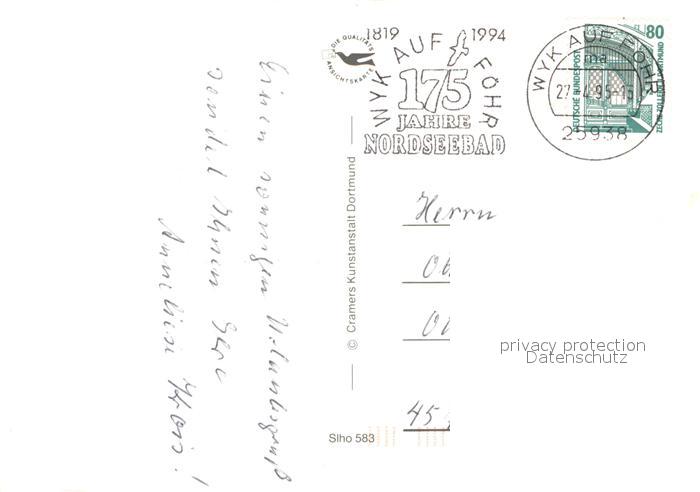 Einen sonnigen Urlaubsgruß
sendet Ihnen Ihre
Anneliese
DIE QUALITÄTS
ANSICHTSKARTE
© Cramers Kunstanstalt Dortmund
Slho 583
1819 1994
WYK AUF FÖHR
175
JAHRE
NORDSEEBAD
WYK AUF FÖHR
ma
25938
80
DEUTSCHE BUNDESPOST
Herrn
45
privacy protection
Datenschutz